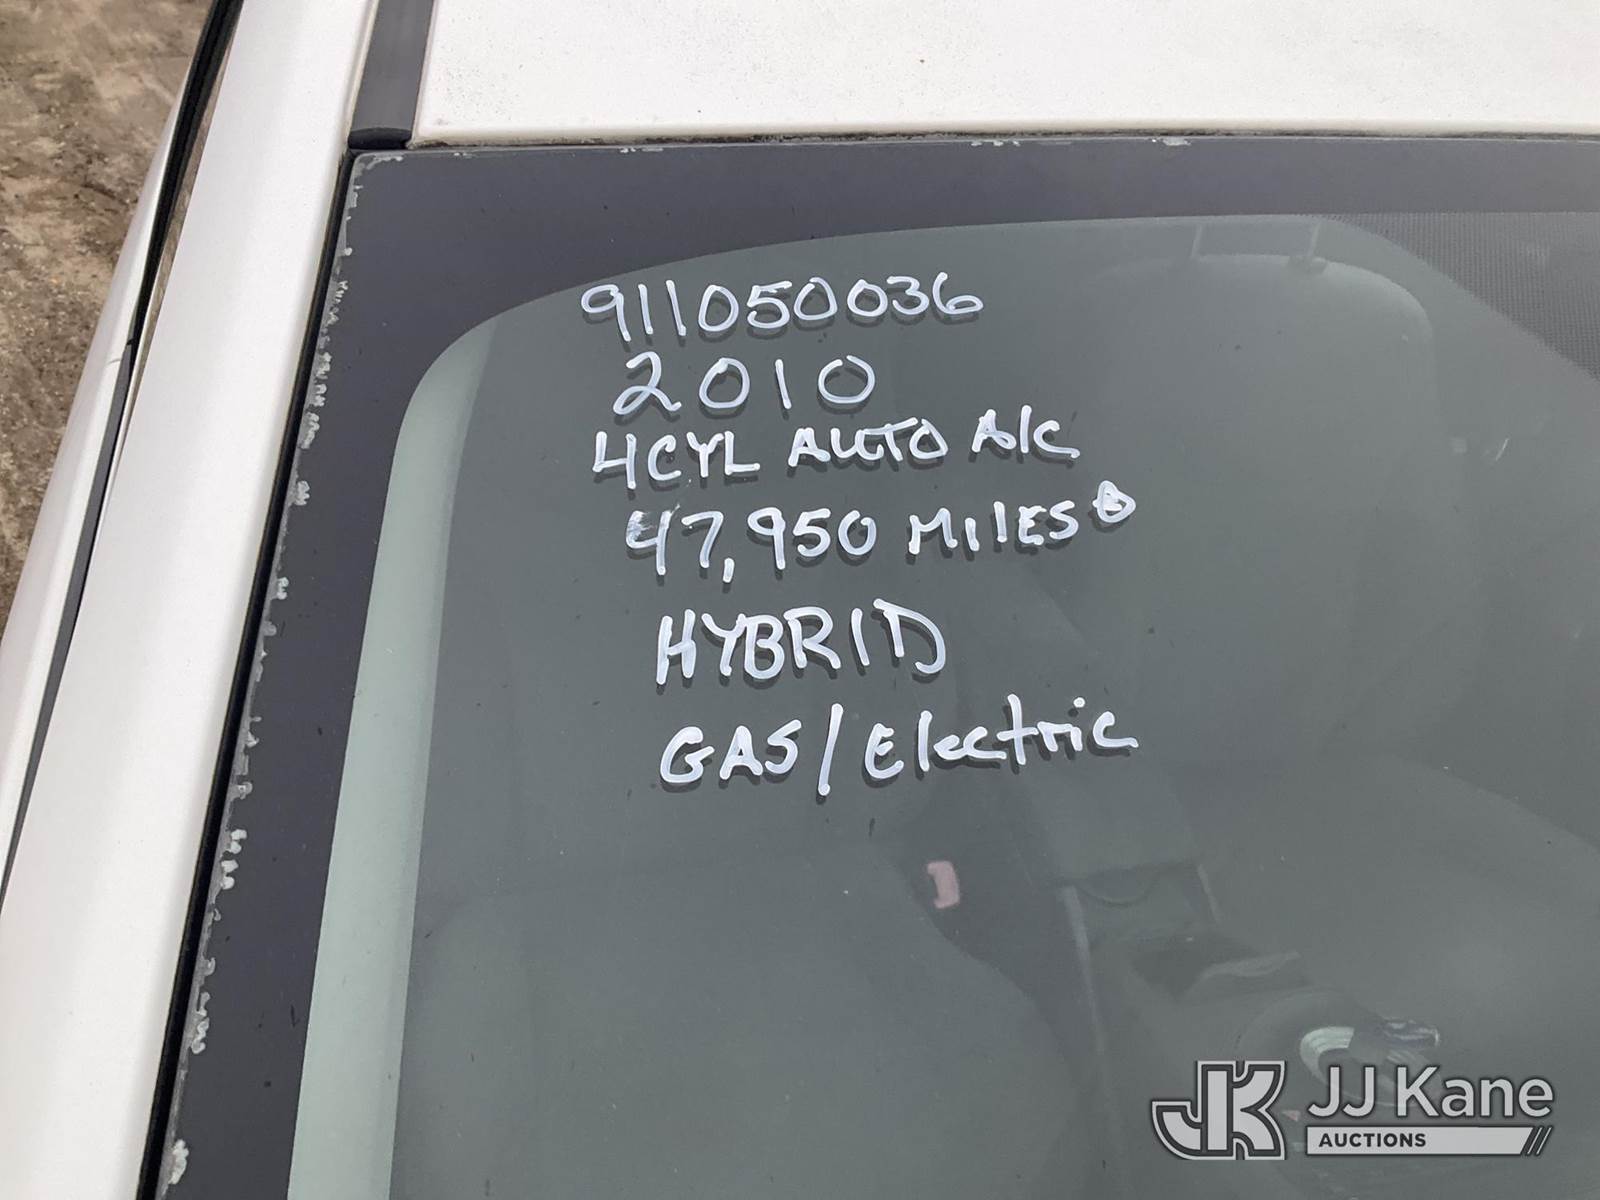 911050036
2010
4CYL AUTO A/C
47,950 MILES
HYBRID
GAS/Electric
JK JJ Kane
AUCTIONS